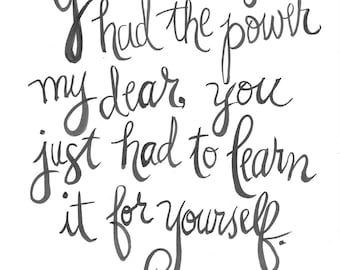 had the power
my dear, you
just had to learn
it for yourself.